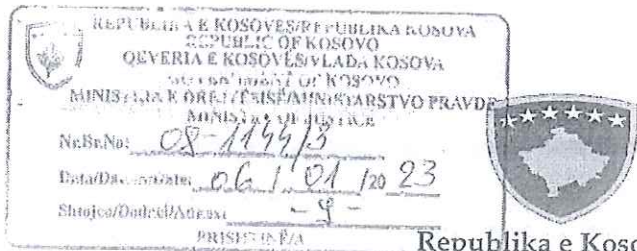 REPUBLIKA E KOSOVËS/REPUBLIKA KOSOVA
REPUBLIC OF KOSOVO
QEVERIA E KOSOVËS/VLADA KOSOVA
GOVERNMENT OF KOSOVO
MINISTRIA E DREJTËSISË/MINISTARSTVO PRAVDE
MINISTRY OF JUSTICE
Nr.Br.No: 08-1144/3
Data/Date: 06 / 01 /20 23
-9-
PRISHTINË/A
Republika e Koso